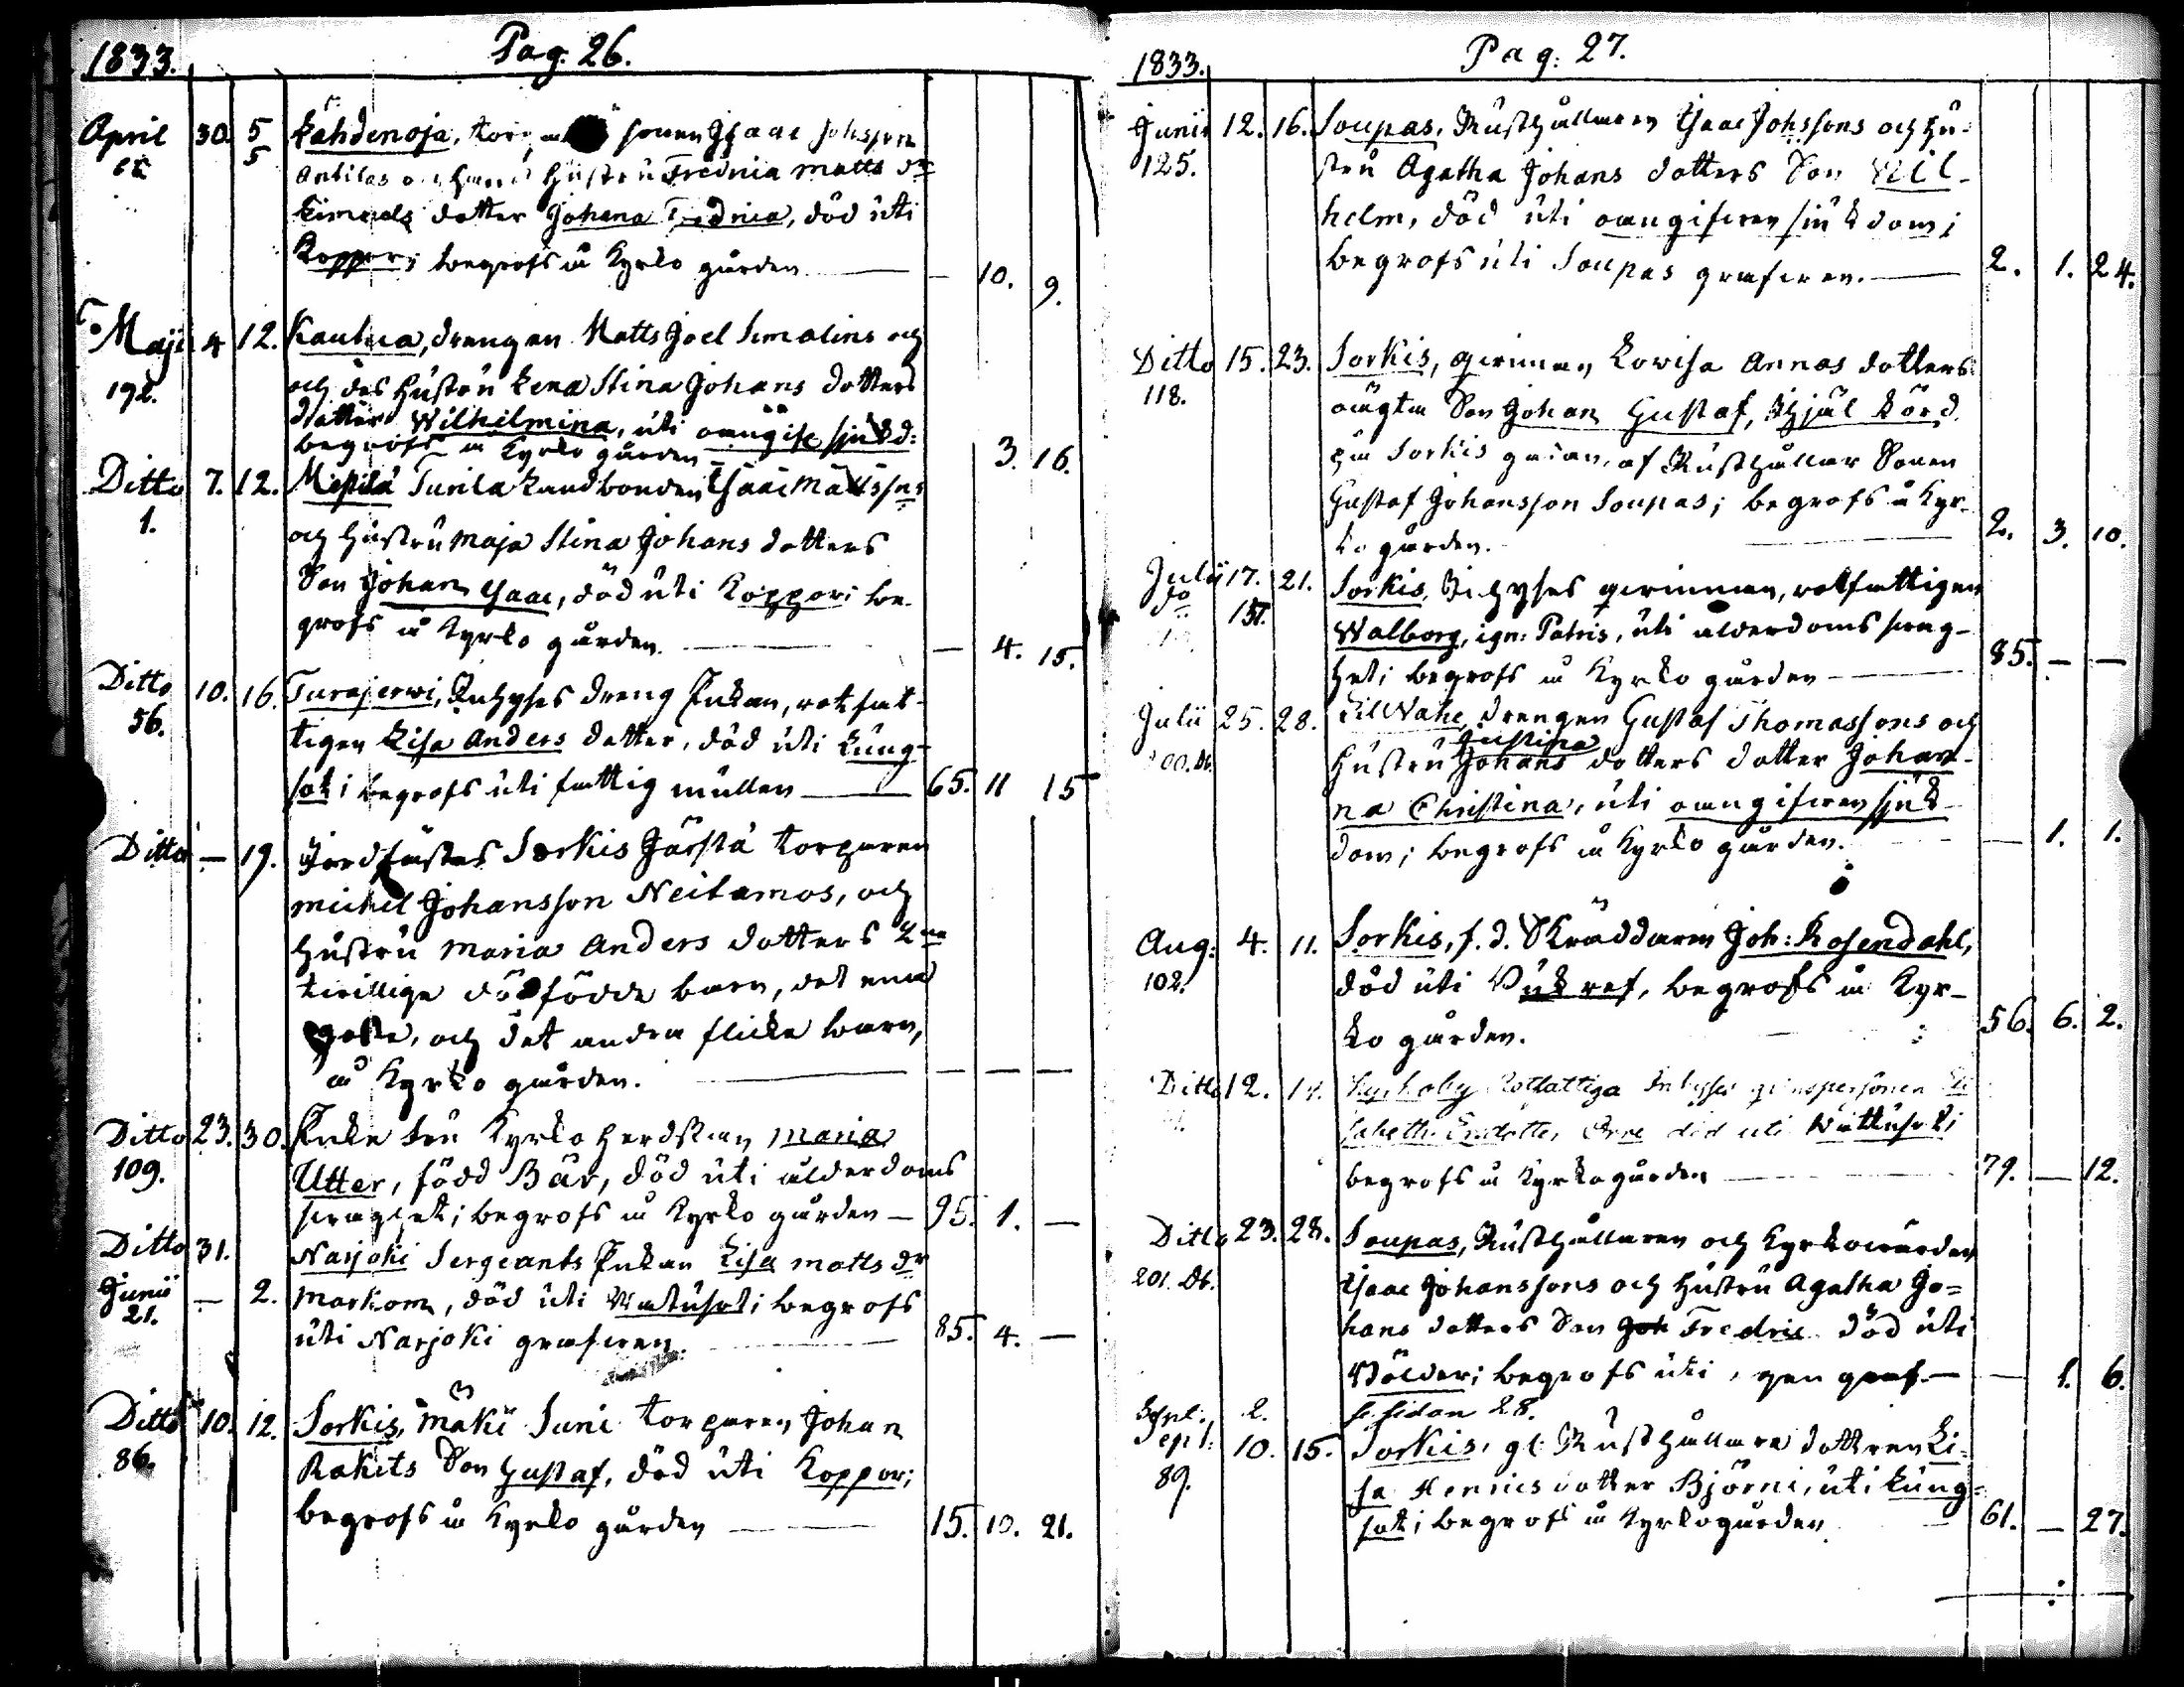 1833. Pag. 26.
April 30. 5/5 Lähdenoja, sonen Isaac Johsson
Antilas och hans hustru Fredrica Matts dr
dotter Johanna Fredrica, död uti
Koppor; begrofs å Kyrko gården — 10. 9.
Maji 4 12. Kauhia, drengen Matts Joel Simalins och
192. och des hustru Lena Stina Johans dotters
dotter Wilhelmina, uti oangifv sjukd:
begrofs å Kyrko gården 3. 16.
Ditto 7. 12. Mäpilä Turila Landbonden Isaac Mattssons
1. och hustru Maja Stina Johans dotters
Son Johan Isaac, död uti Koppor; be-
grofs å Kyrko gården. — 4. 15.
Ditto 10. 16. Turajerwi, Inhyses dreng Enkan, rotfat-
56. tigen Lisa Anders dotter, död uti Lung-
sot; begrofs uti fattig mullen 65. 11 15
Ditto — 19. Jordfästes Sorkis Järstä torparen
Michel Johansson Neitamos, och
hustru Maria Anders dotters 2ne
twillige dödfödde barn, det ena
gosse, och det andra flicke barn,
å Kyrko gården. — — —
Ditto 23. 30. Enke fru Kyrkoherdskan Maria
109. Utter, född Bär, död uti ålderdoms
swaghet; begrofs å Kyrko gården — 95. 1. —
Ditto 31. Narjoki Sergeants Enkan Lisa Matts dr
Junii — 2. Markom, död uti Wattusot; begrofs
21. uti Narjoki grafwen. 85. 4. —
Ditto 10. 12. Sorkis, Mäki Suni torparen Johan
86. Rakits Son Gustaf, död uti Koppor;
begrofs å Kyrko gården 15. 10. 21.
1833. Pag: 27.
Junii 12. 16. Soupas, Rusthållaren Isaac Johssons och hu-
125. stru Agatha Johans dotters Son Wil-
helm, död uti oangifwen sjukdom;
begrofs uti Soupas grafwen. 2. 1. 24.
Ditto 15. 23. Sorkis, qwinnan Lowisa Annas dotters
118. oägta Son Johan Gustaf, ihjäl körd
på Sorkis gatan, af Rusthållar Sonen
Gustaf Johansson Soupas; begrofs å Kyr-
ko gården. 2. 3. 10.
Julii 17. 21. Sorkis, Inhyses qwinnan, rotfattigen
do 151. Walborg, ign: Patris, uti ålderdoms swag-
het; begrofs å Kyrko gården 85. — —
Julii 25. 28. LillNahe, drengen Gustaf Thomassons och
Justina
hustru Johans dotters dotter Johan-
na Christina, uti oangifwen sjuk-
dom; begrofs å Kyrko gården. — 1. 1.
Aug: 4. 11. Sorkis, f.d. Skräddaren Joh: Rosendahl,
102. död uti Bukref, begrofs å Kyr-
ko gården. 56. 6. 2.
Ditto 12. 14. Kyrkoby Rotfattiga Inhyses qwinspersonen Eli
sabeth död uti Wattusot;
begrofs å Kyrkogården 79. — 12.
Ditto 23. 28. Soupas, Rusthållaren och Kyrkowärden
201. Db. Isaac Johanssons och hustru Agatha Jo=
hans dotters Son Joh Fredric död uti
Bölder; begrofs uti egen graf. — — 1. 6.
Sept: 2. se sidan 28.
Sept: 10. 15. Sorkis, gl: Rusthållare dottren Li-
89. sa Henrics dotter Björni, uti Lung=
sot; begrofs å Kyrkogården 61. — 27.